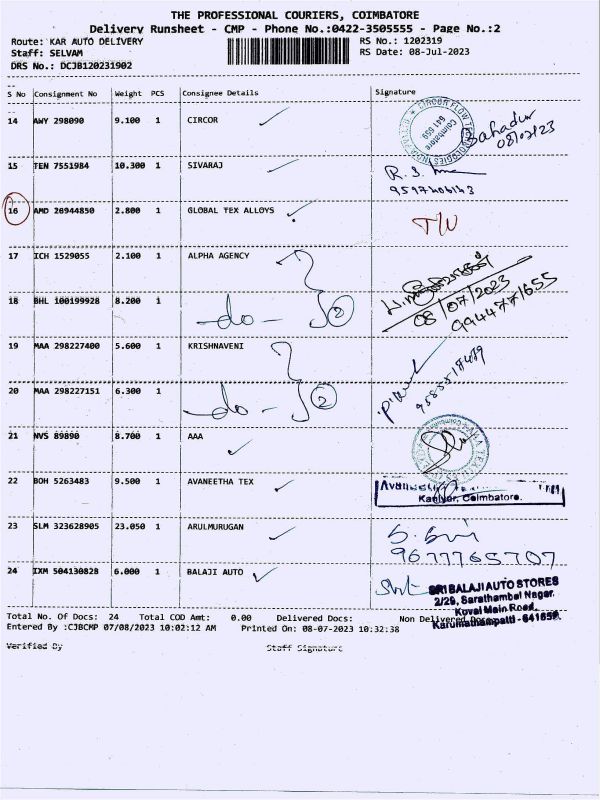 THE PROFESSIONAL COURIERS, COIMBATORE
Delivery Runsheet - CMP - Phone No.:0422-3505555 - Page No.:2
Route: KAR AUTO DELIVERY RS No.: 1202319
Staff: SELVAM RS Date: 08-Jul-2023
DRS No.: DCJB120231902
S No Consignment No Weight PCS Consignee Details Signature
14 AWY 298090 9.100 1 CIRCOR
CIRCOR FLOW TECHNOLOGIES INDIA PVT LTD Coimbatore 641 659
Bahadur
08/07/23
15 TEN 7551984 10.300 1 SIVARAJ
16 AMD 26944850 2.800 1 GLOBAL TEX ALLOYS
17 ICH 1529055 2.100 1 ALPHA AGENCY
18 BHL 100199928 8.200 1
-do- 2
08/07/2023
9944771655
19 MAA 298227400 5.600 1 KRISHNAVENI
20 MAA 298227151 6.300 1
-do- 2
21 NVS 89890 8.700 1 AAA
22 BOH 5263483 9.500 1 AVANEETHA TEX
Kaniyur, Coimbatore.
23 SLM 323628905 23.050 1 ARULMURUGAN
9677765707
24 IXM 504130828 6.000 1 BALAJI AUTO
SRI BALAJI AUTO STORES
2/29, Sarathambal Nagar,
Kovai Main Road,
Karumathampatti - 641659.
Total No. Of Docs: 24 Total COD Amt: 0.00 Delivered Docs: Non Delivered
Entered By :CJBCMP 07/08/2023 10:02:12 AM Printed On: 08-07-2023 10:32:38
Verified By Staff Signature